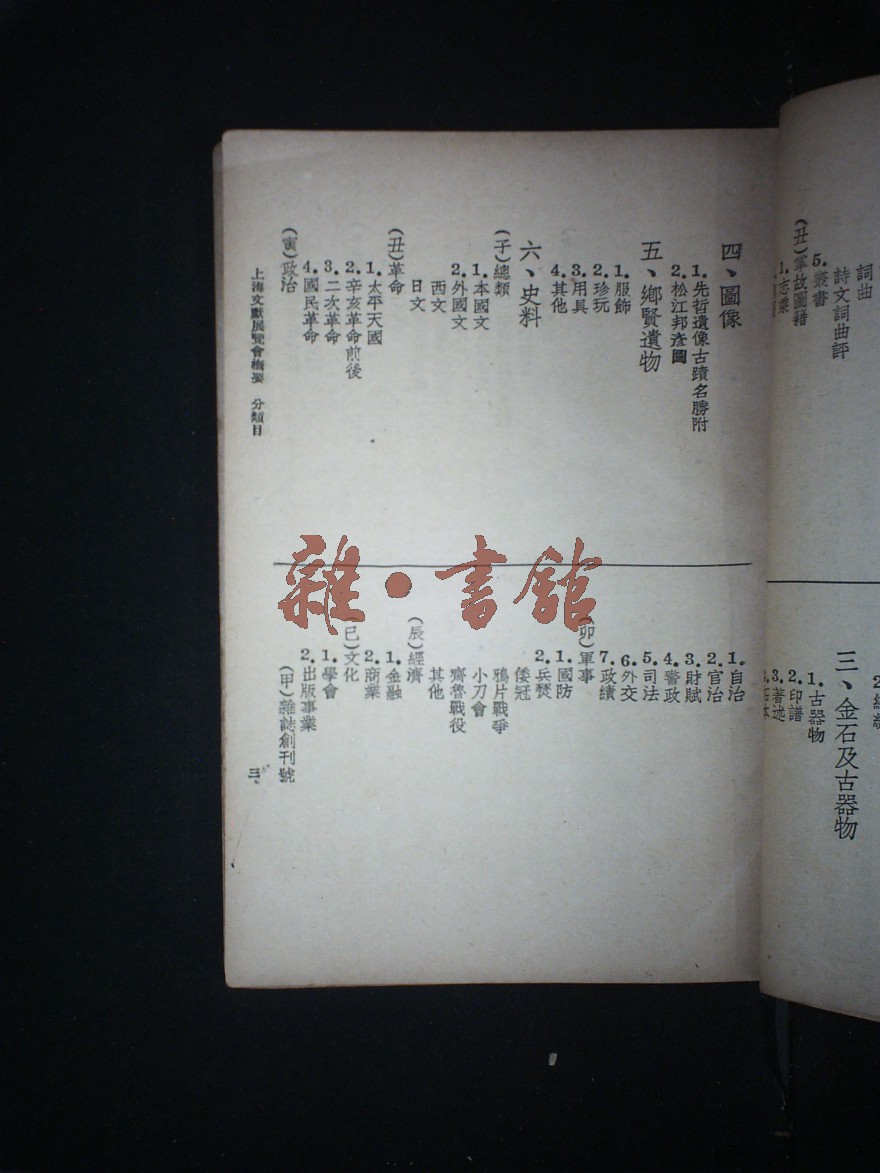 詞曲
詩文詞曲評
5.叢書
(丑)軍故圖籍
1.志乘
三、金石及古器物
1.古器物
2.印譜
3.著述
四、圖像
1.先哲遺像古蹟名勝附
2.松江邦彥圖
五、鄉賢遺物
1.服飾
2.珍玩
3.用具
4.其他
六、史料
(子)總類
1.本國文
2.外國文
西文
日文
(丑)革命
1.太平天國
2.辛亥革命前後
3.二次革命
4.國民革命
(寅)政治
1.自治
2.官治
3.財賦
4.警政
5.司法
6.外交
7.政績
(卯)軍事
1.國防
2.兵燹
倭寇
鴉片戰爭
小刀會
齊魯戰役
其他
(辰)經濟
1.金融
2.商業
(巳)文化
1.學會
2.出版事業
(甲)雜誌創刊號
上海文獻展覽會概要 分類目
三、
雜·書館